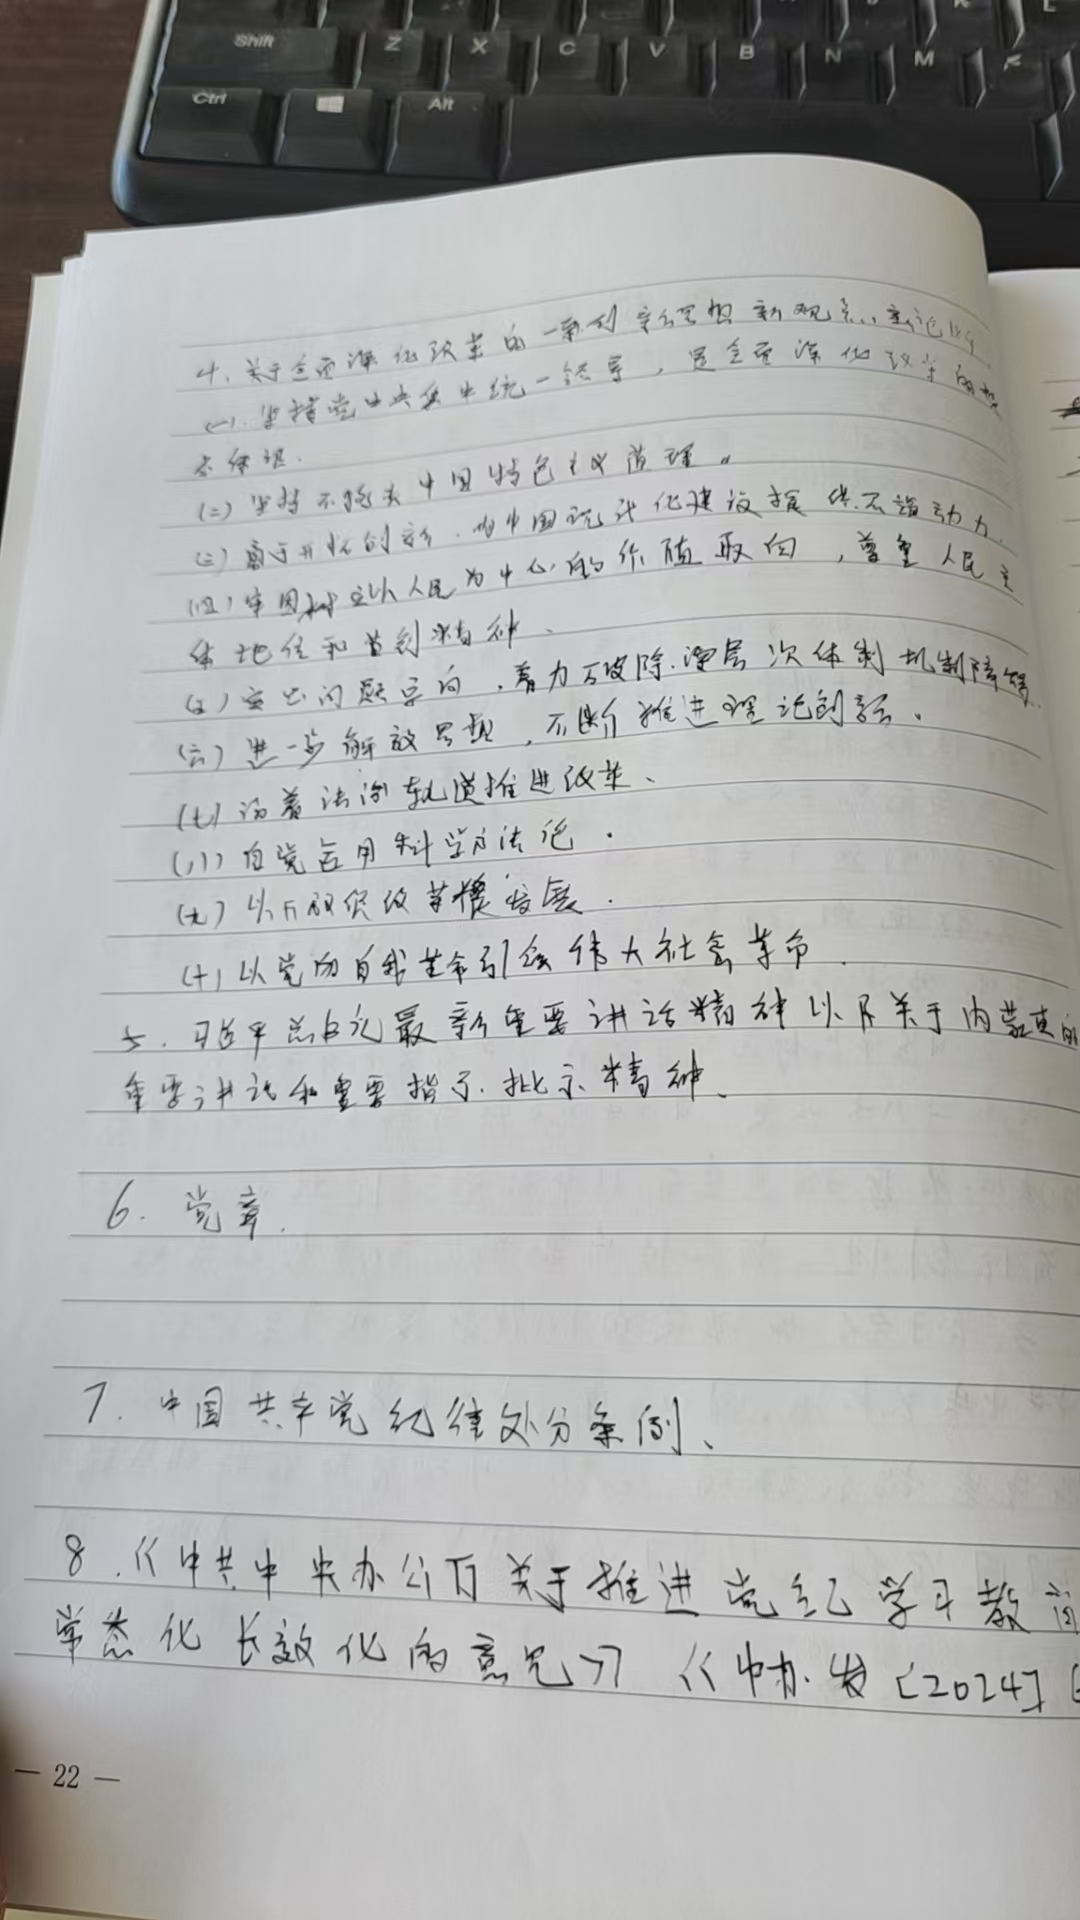 Shift Z X C V B N M
Ctrl Alt
4、关于全面深化改革的一系列新思想新观点、新论断
(一).坚持党中央集中统一领导，是全面深化改革的根
本保证.
(二)坚持不能丢中国特色主义道理。
(三)勇于开拓创新.为中国现代化建设提供不竭动力.
(四)牢固树立以人民为中心的价值取向，尊重人民主
体地位和首创精神、
(五)突出问题导向，着力于破除深层次体制机制障碍.
(六)进一步解放思想，不断推进理论创新.
(七)沿着法治轨道推进改革、
(八)自觉运用科学方法论.
(九)以开放促改革 发展.
(十)以党的自我革命引领伟大社会革命.
5.习近平总书记最新重要讲话精神以及关于内蒙古的
重要讲话和重要指示.批示精神、
6.党章.
7.中国共产党纪律处分条例、
8.《中共中央办公厅关于推进党纪学习教育
常态化长效化的意见》《中办.发[2024]
— 22 —